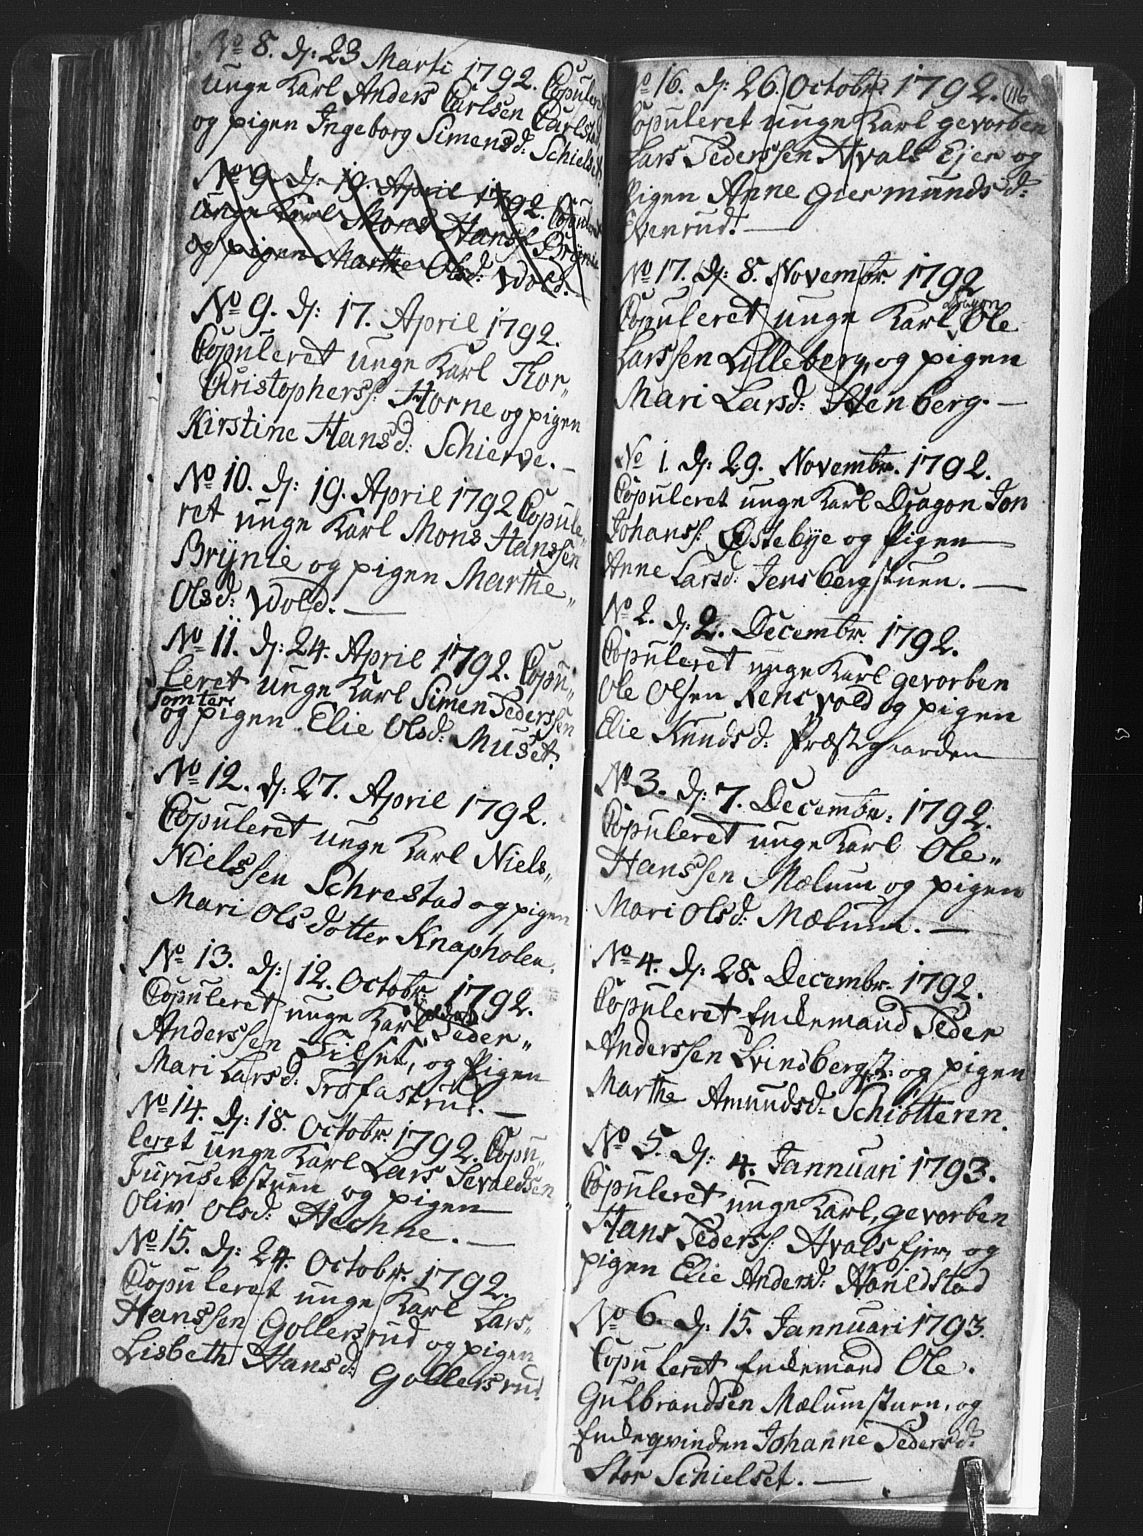 No 8. dj: 23 Marti 1792. Copuleret
unge Karl Anders Carlsen Carlstad
og pigen Ingeborg Simensd: Schielset
No 9. dj. 19. April 1792. Copuleret
unge Karl Mons Hanss: Brÿnie
og pigen Marthe Olsd: Wold.
No 9. dj: 17. April 1792.
Copuleret unge Karl Tor„
Christopherss: Horne og pigen
Kirstine Hansd: Schierve. —
No 10. dj: 19. April 1792 Copule„
ret unge Karl Mons Hanssen
Brÿnie og pigen Marthe„
Olsd: Wold. —
No 11. dj: 24. April 1792. Copu„
leret unge Karl Simen Pederssen
Tomter
og pigen Elie Olsd: Muset.
No 12. dj: 27. April 1792.
Copuleret unge Karl Niels„
Nielssen Schrestad og pigen
Mari Olsdotter Knapholen.
No 13. dj: 12. Octobr. 1792.
Copuleret unge Karl Peder„
Anderssen Filset, og Pigen
Mari Larsd: Trofastrud. —
No 14. dj: 18. Octobr. 1792. Copu„
leret unge Karl Lars Sevaldsen
Furusetstuen og pigen
Oliv Olsd: Hechne. —
No 15. dj: 24. Octobr. 1792.
Copuleret unge Karl Lars„
Hanssen Gollersrud og pigen
Lisbeth Hansd: Gollersrud
116
No 16. dj: 26. Octobr. 1792.
Copuleret unge Karl gevorben
Lars Pederssen Hvals Ejer og
Pigen Anne Giermundsd:
Evenrud. —
No 17. dj: 8. Novembr. 1792
Dragon
Copuleret unge Karl Ole
Larssen Lilleberg, og pigen
Mari Larsd: Stenberg. —
No 1. dj: 29. Novembr. 1792.
Copuleret unge Karl Dragon Jon
Johanss: Østebÿe og Pigen
Anne Larsd: Jensbergstuen. —
No 2. dj: 2. Decembr. 1792.
Copuleret unge Karl gevorben
Ole Olsen Rensvold og pigen
Elie Knudsd: Præstegaarden
No 3. dj: 7. Decembr: 1792.
Copuleret unge Karl Ole„
Hanssen Mælum og pigen
Mari Olsd: Mælum. —
No 4. dj: 28. Decembr. 1792.
Copuleret Enkemand Peder
Anderssen Lvindbergst: og pigen
Marthe Amundsd: Schiötteren.
No 5. dj: 4. Jannuari 1793.
Copuleret unge Karl, gevorben
Hans Pederss: Hvals Ejer, og
pigen Elie Andersd: Hauldstad
No 6. dj: 15. Jannuari 1793.
Copuleret Enkemand Ole.
Gulbrandsen Mælumstuen, og
Enkeqvinden Johanne Pedersd:
Stor Schielset. —